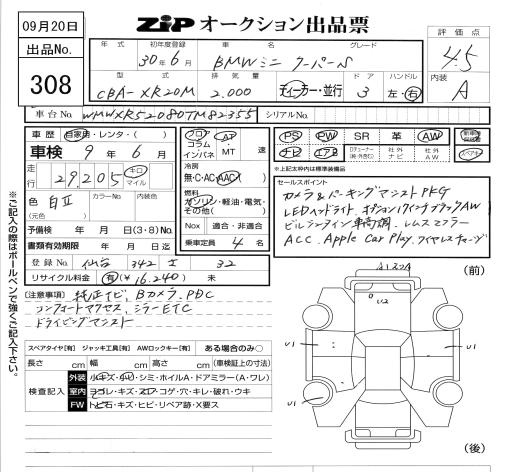 09月20日
ZiPオークション出品票
出品No.
308
年式 初年度登録 車名 グレード
30年6月 BMWミニ クーパーS
型式 排気量 ドア ハンドル
CBA-XR20M 2.000 ディーラー・並行 3 左・右
評価点
4.5
内装
A
車台No. WMWXR52080TM82355 シリアルNo.
車歴 自家用・レンタ・( )
車検 9年6月
走行 29,205 キロ マイル
色 白Ⅱ カラーNo. 内装色
(元色)
予備検 年 月 日(3・8)No.
書類有効期限 年 月 日迄
登録No. 仙台 342 す 32
リサイクル料金 有(¥16.240) 未
フロア コラム インパネ
AT・MT 速
冷房
無・C・AC・AAC
燃料
ガソリン・軽油・電気・その他( )
Nox 適合・非適合
乗車定員 4 名
PS PW SR 革 AW 新車時保証書
ナビ エアB Dチューナー(純・外含む) 社外ナビ 社外AW スペアキー
*上記太枠内は標準装備品
セールスポイント
カメラ&パーキングアシストPKG
LEDヘッドライト、オプション17インチブラックAW
ACC、Apple Car Play、ワイヤレスチャージ
[注意事項] 純正ナビ、Bカメラ、PDC
コンフォートアクセス、ミラーETC
ドライビングアシスト
スペアタイヤ[有] ジャッキ工具[有] AWロックキー[有] ある場合のみ○
長さ cm 幅 cm 高さ cm (車検証上の寸法)
検査記入
外装 小キズ・小凹・シミ・ホイルA・ドアミラー(A・ワレ)
室内 ヨゴレ・キズ・スレ・コゲ・穴・キレ・破れ・ウキ
FW トビ石・キズ・ヒビ・リペア跡・X要ス
(前)
U2
U1
U1
(後)
※ご記入の際はボールペンで強くご記入下さい。